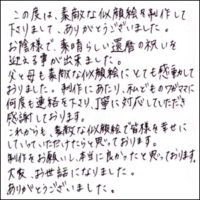 この度は、素敵な似顔絵を制作して
下さりまして、ありがとうございました。
お陰様で、素晴らしい還暦の祝いを
迎える事が出来ました。
父と母も素敵な似顔絵にとても感動して
おりました。制作にあたり、私どものワガママに
何度も連絡を下さり、丁寧に対応していただき
感謝しております。
これからも、素敵な似顔絵で皆様を幸せに
していっていただけたらと思っております。
制作をお願いし、本当に良かったと思っております。
大変、お世話になりました。
ありがとうございました。